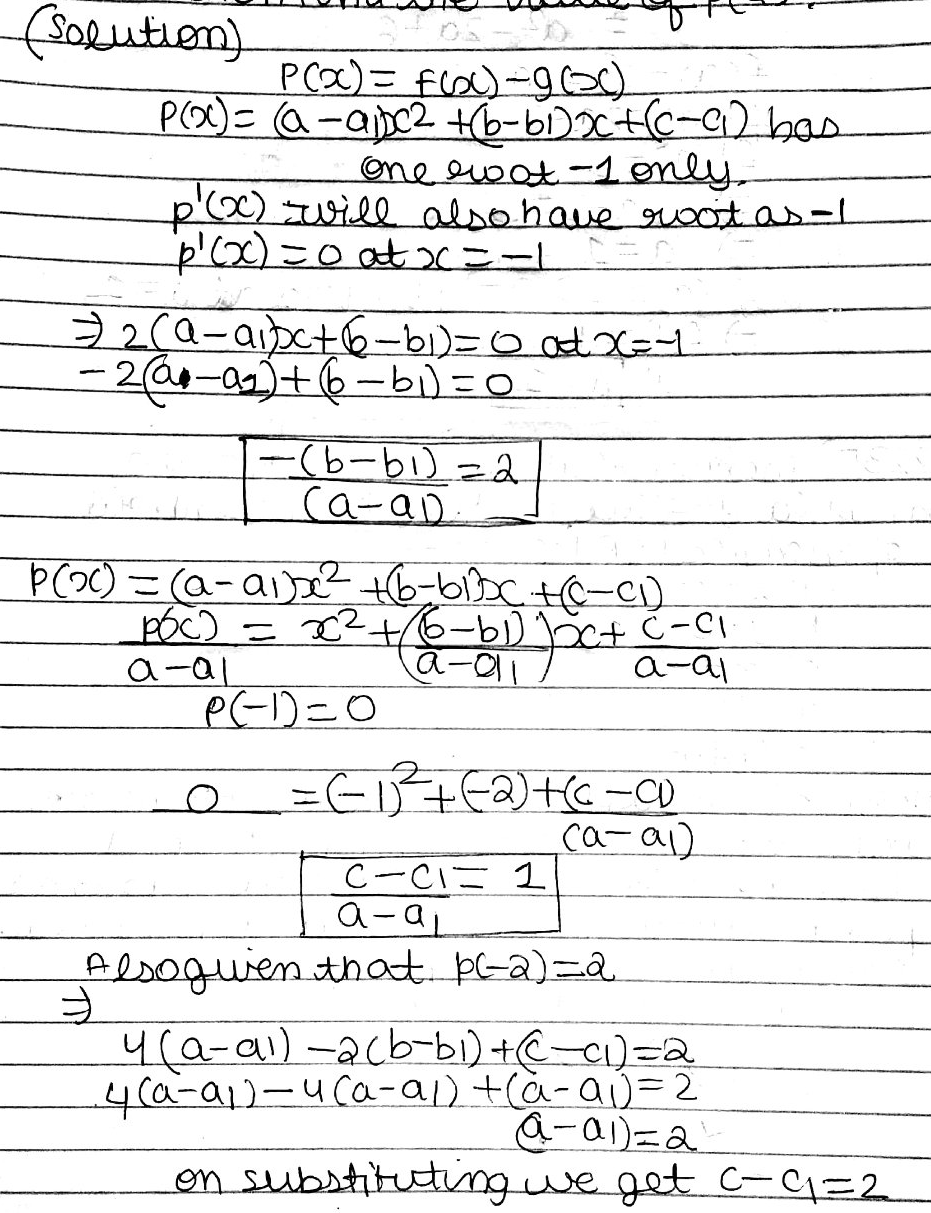 the value of P(
(Solution)
P(x) = f(x) - g(x)
P(x) = (a - a1)x² + (b-b1)x + (c-c1) has
one root -1 only.
p'(x) will also have root as -1
p'(x) = 0 at x = -1
⇒ 2(a-a1)x + (b-b1) = 0 at x=-1
- 2(a-a1) + (b-b1) = 0
-(b-b1)/(a-a1) = 2
P(x) = (a-a1)x² + (b-b1)x + (c-c1)
p(x)/a-a1 = x² + ((b-b1)/a-a1)x + c-c1/a-a1
P(-1) = 0
0 = (-1)² + (-2) + (c-c1)/(a-a1)
c-c1/a-a1 = 1
Also given that p(-2)=2
⇒
4(a-a1) -2(b-b1) + (c-c1) = 2
4(a-a1) - 4(a-a1) + (a-a1) = 2
(a-a1) = 2
on substituting we get c-c1=2